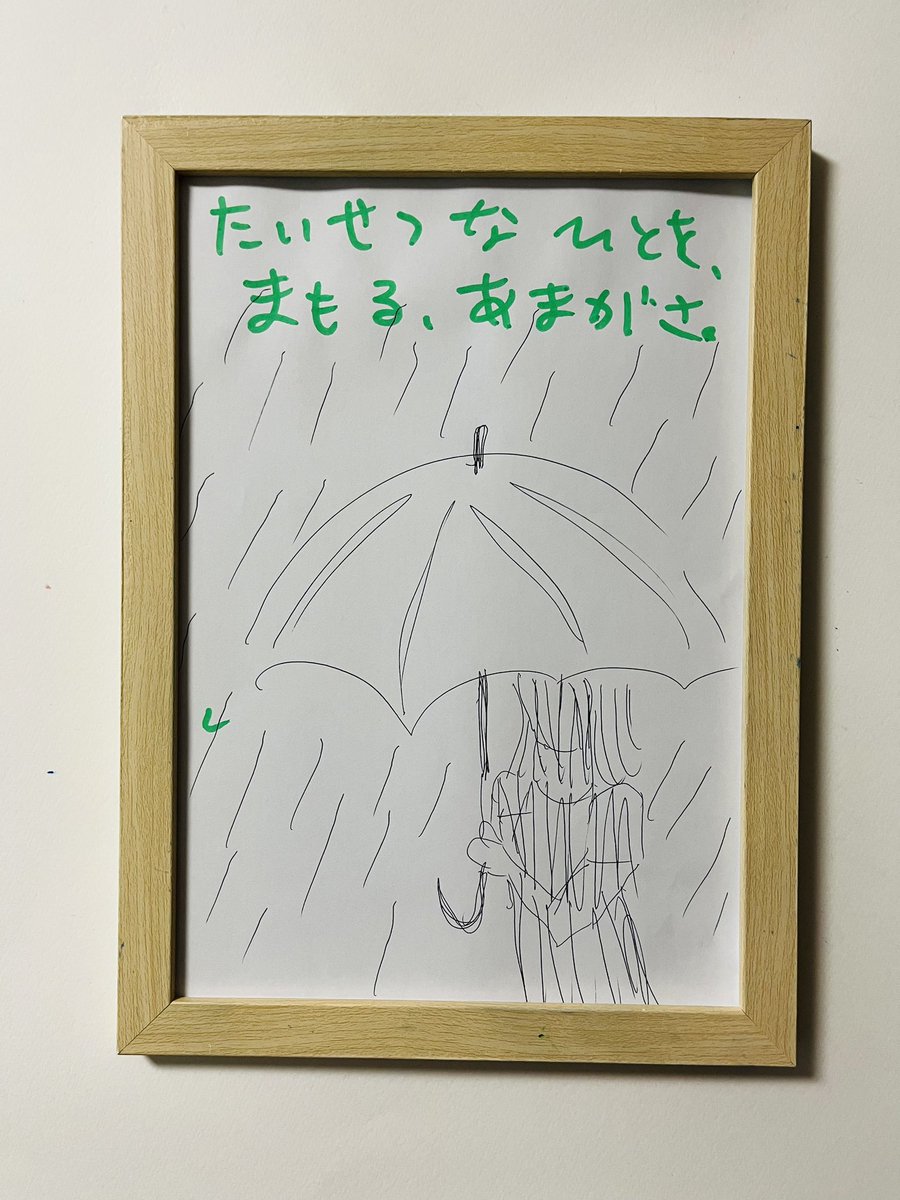 たいせつな ひとを、
まもる、あまがさ。